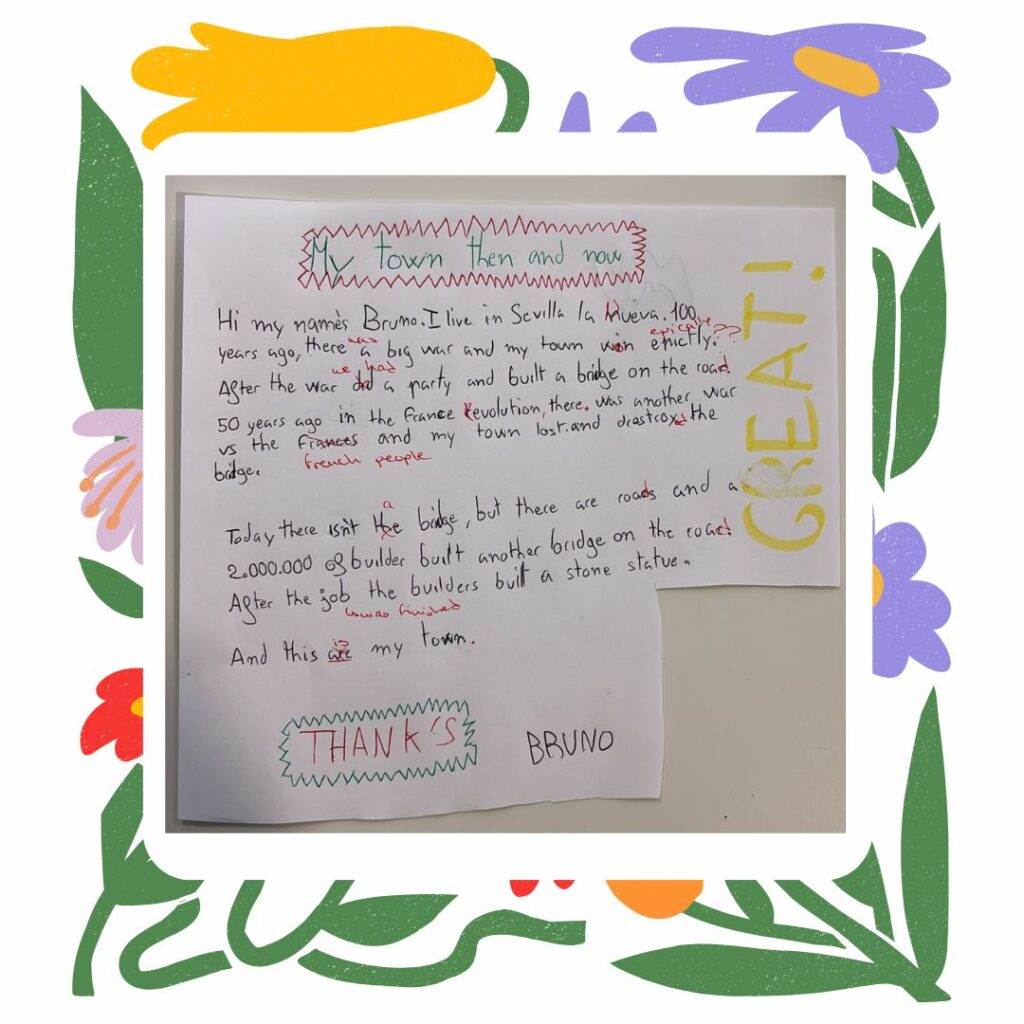 My town then and now
Hi my name's Bruno. I live in Sevilla la Nueva. 100
epically??
years ago, there was a big war and my town won epictly.
we had
After the war did a party and built a bridge on the road.
50 years ago in the France Revolution, there was another war
vs the Frances and my town lost. and destroyed the
bridge.
french people
a
Today there isn't the bridge, but there are roads and a
2.000.000 of builder built another bridge on the road.
After the job the builders built a stone statue.
was finished
is
And this are my town.
THANK'S
BRUNO
GREAT!